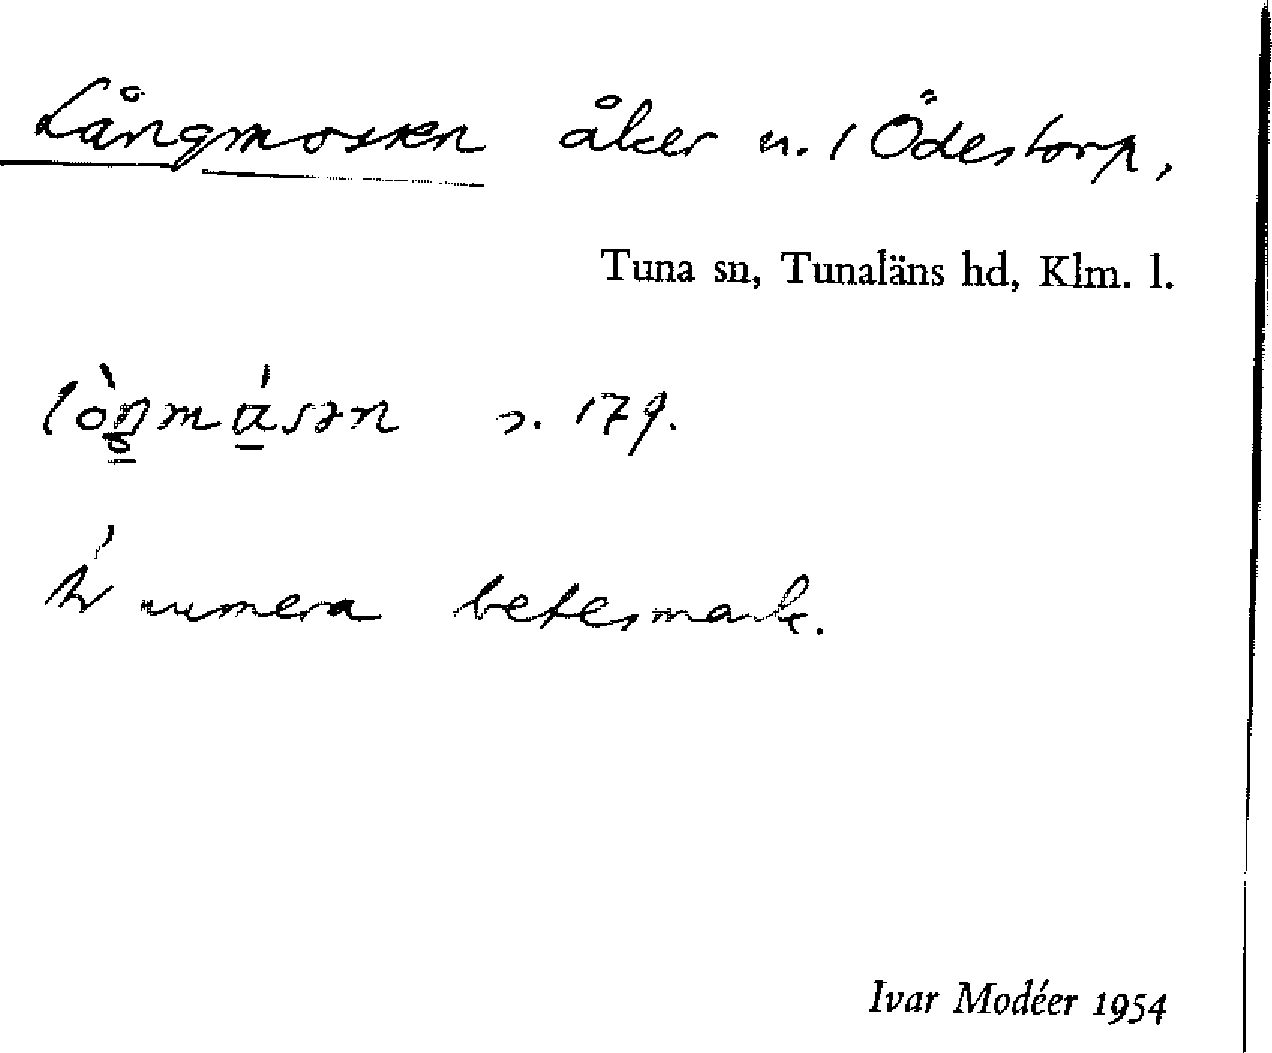 Långmossen åker u. 1 Ödestorp,
Tuna sn, Tunaläns hd, Klm. l.
s. 179.
Är numera betesmark.
Ivar Modéer 1954